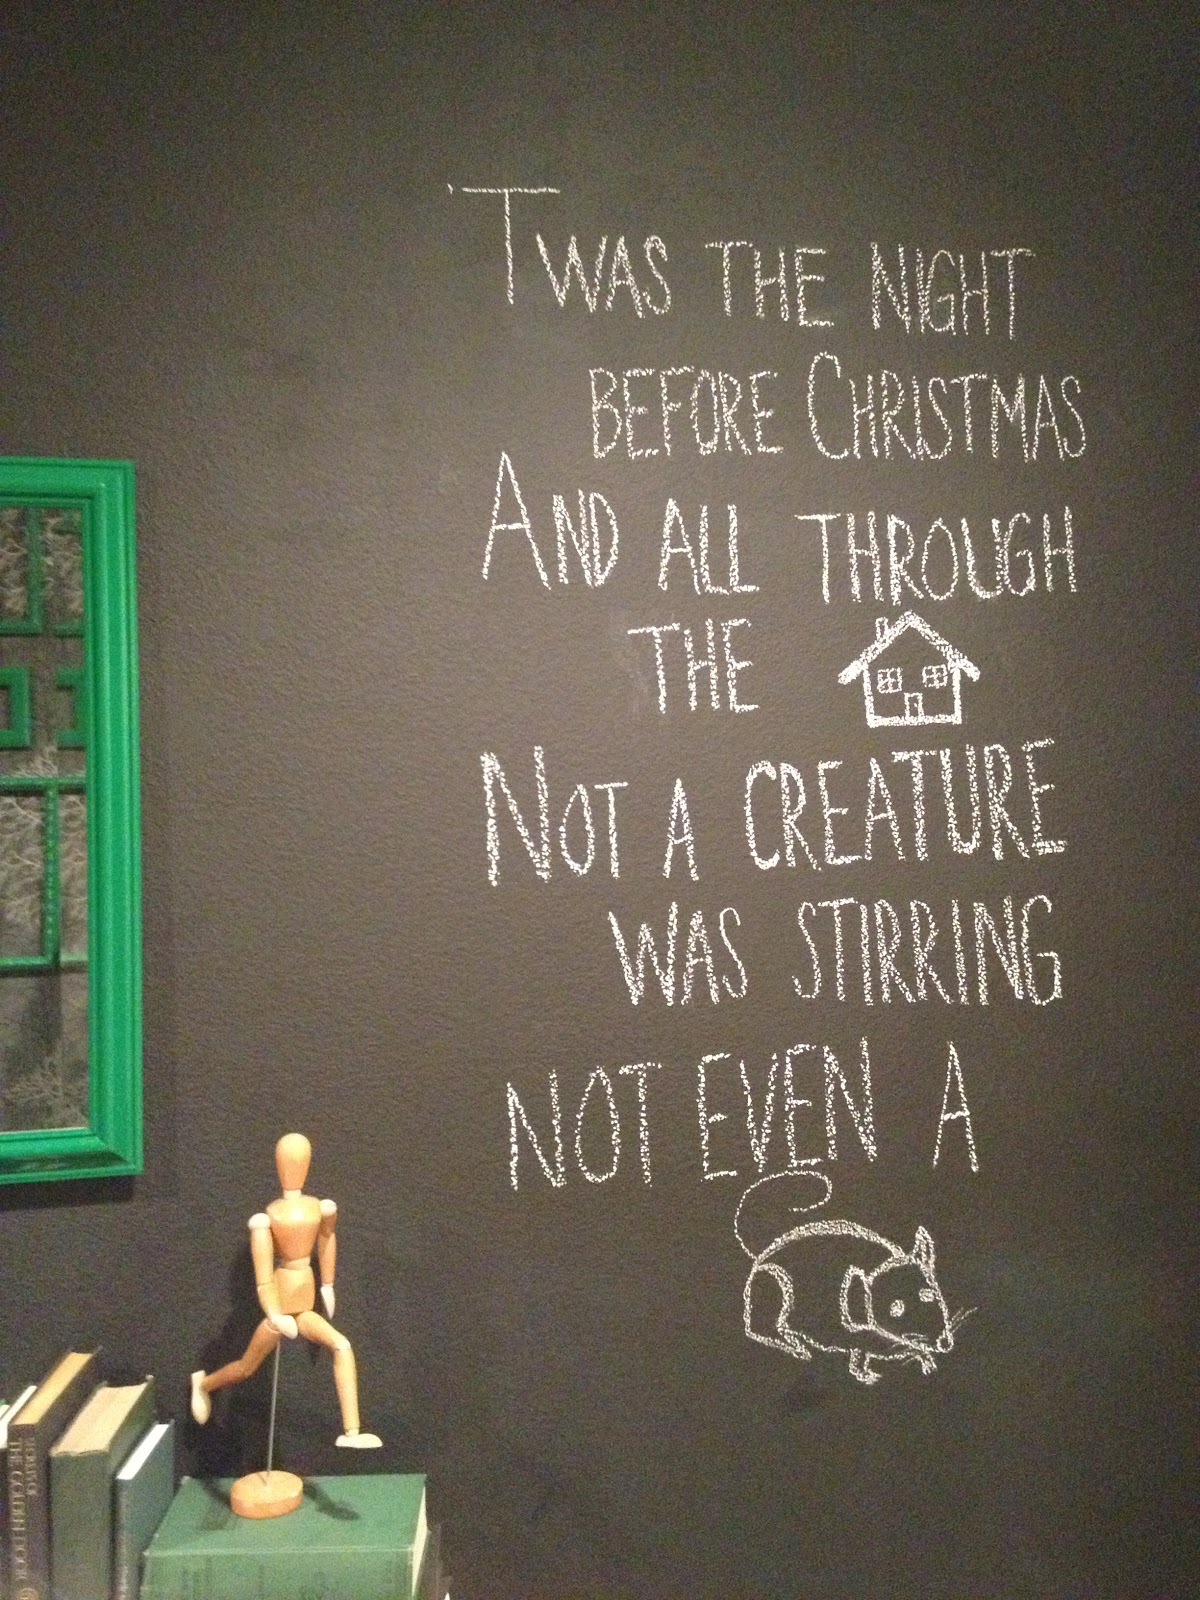 'TWAS THE NIGHT
BEFORE CHRISTMAS
AND ALL THROUGH
THE
NOT A CREATURE
WAS STIRRING
NOT EVEN A
THE GOLDEN DOOR